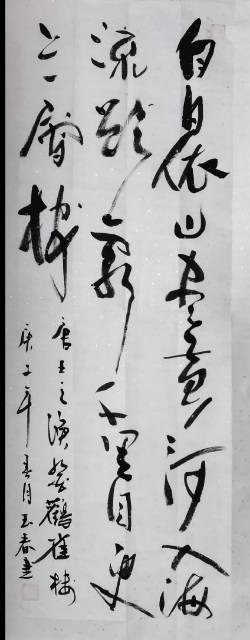 白日依山尽黄河入海
流欲穷千里目更
上一层楼
唐王之涣登鹳雀楼
庚子年春月玉春书